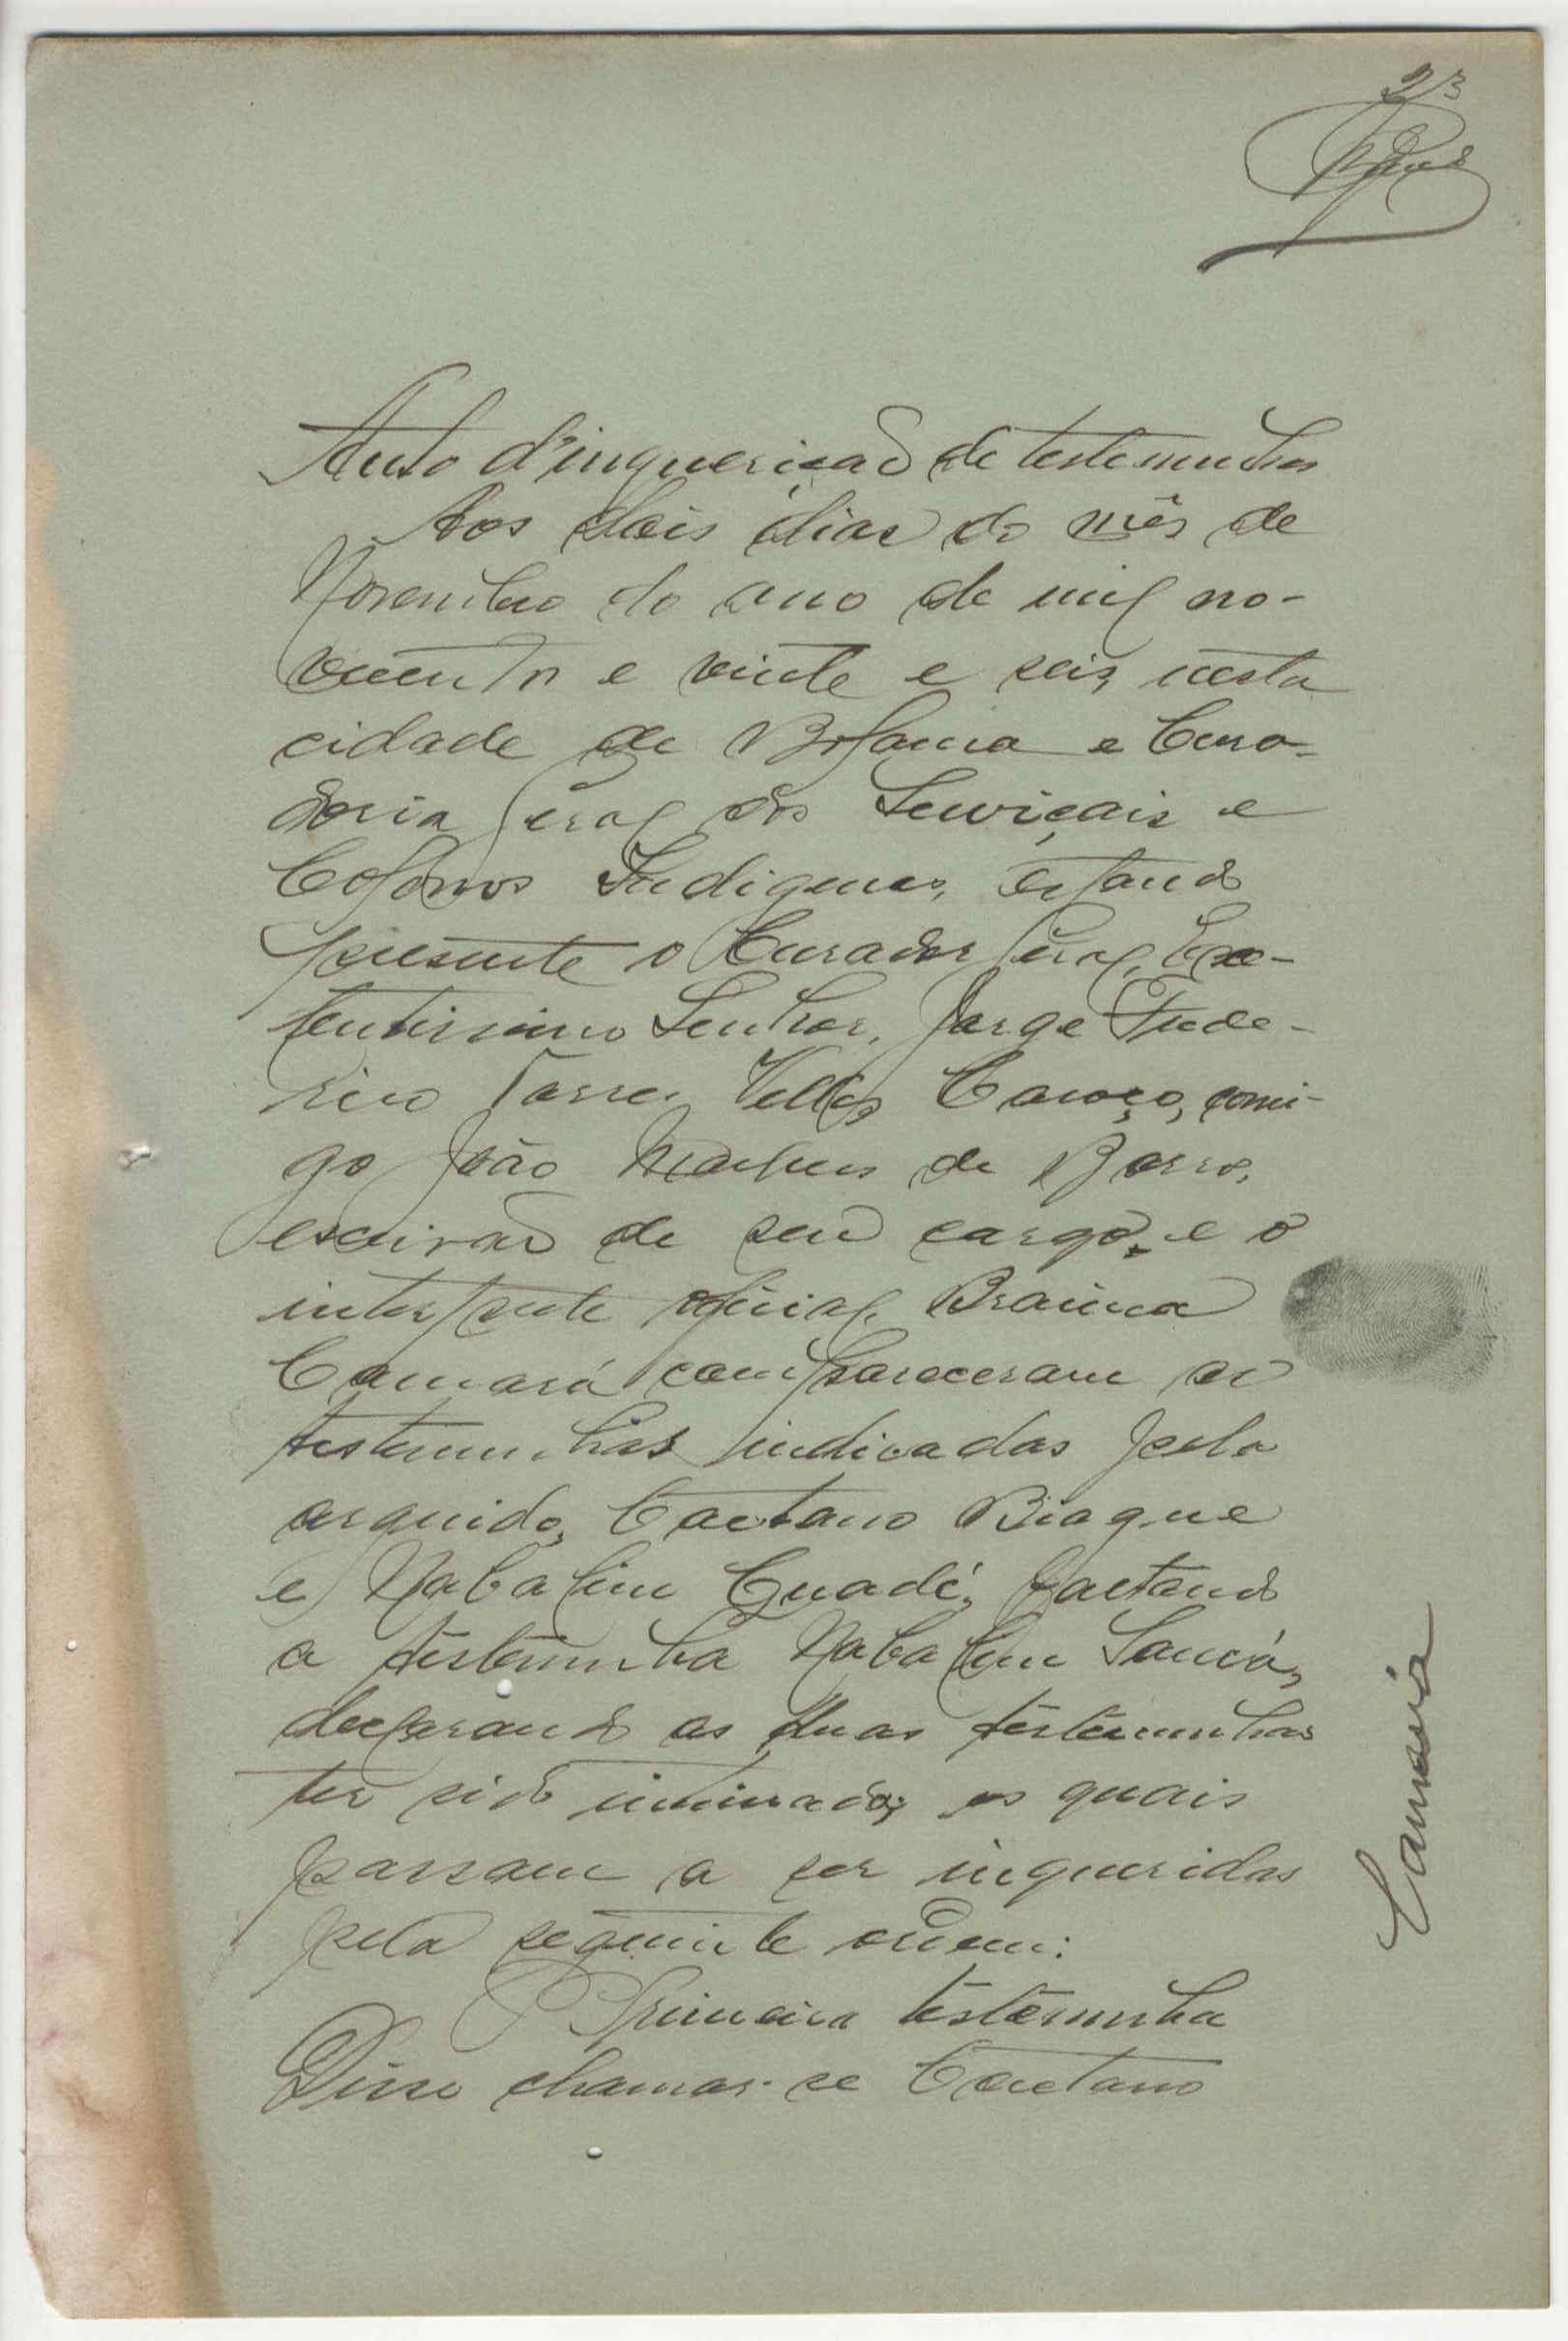 23
Auto d'inquerição de testemunhas
Aos dois dias do mês de
Novembro do ano de mil no-
vecentos e vinte e seis, nesta
cidade de Bolama e Cura-
doria Geral dos Serviçais e
Colonos Indigenas, estando
presente o Curador Geral, Exce-
lentissimo Senhor, Jorge Frede-
rico Torres Vellez Caroço, comi-
go João Marques de Barros,
escrivão de seu cargo, e o
interprete oficial, Braima
Camará compareceram as
testemunhas indicadas pelo
arguido, Caetano Biague
e Nabalim Guadé, faltando
a testemunha Nabalim Sancá,
declarando as duas testemunhas
ter sido intimado; as quais
passam a ser inqueridas
pela seguinte ordem:
Primeira testemunha
Disse chamar-se Caetano
Camará